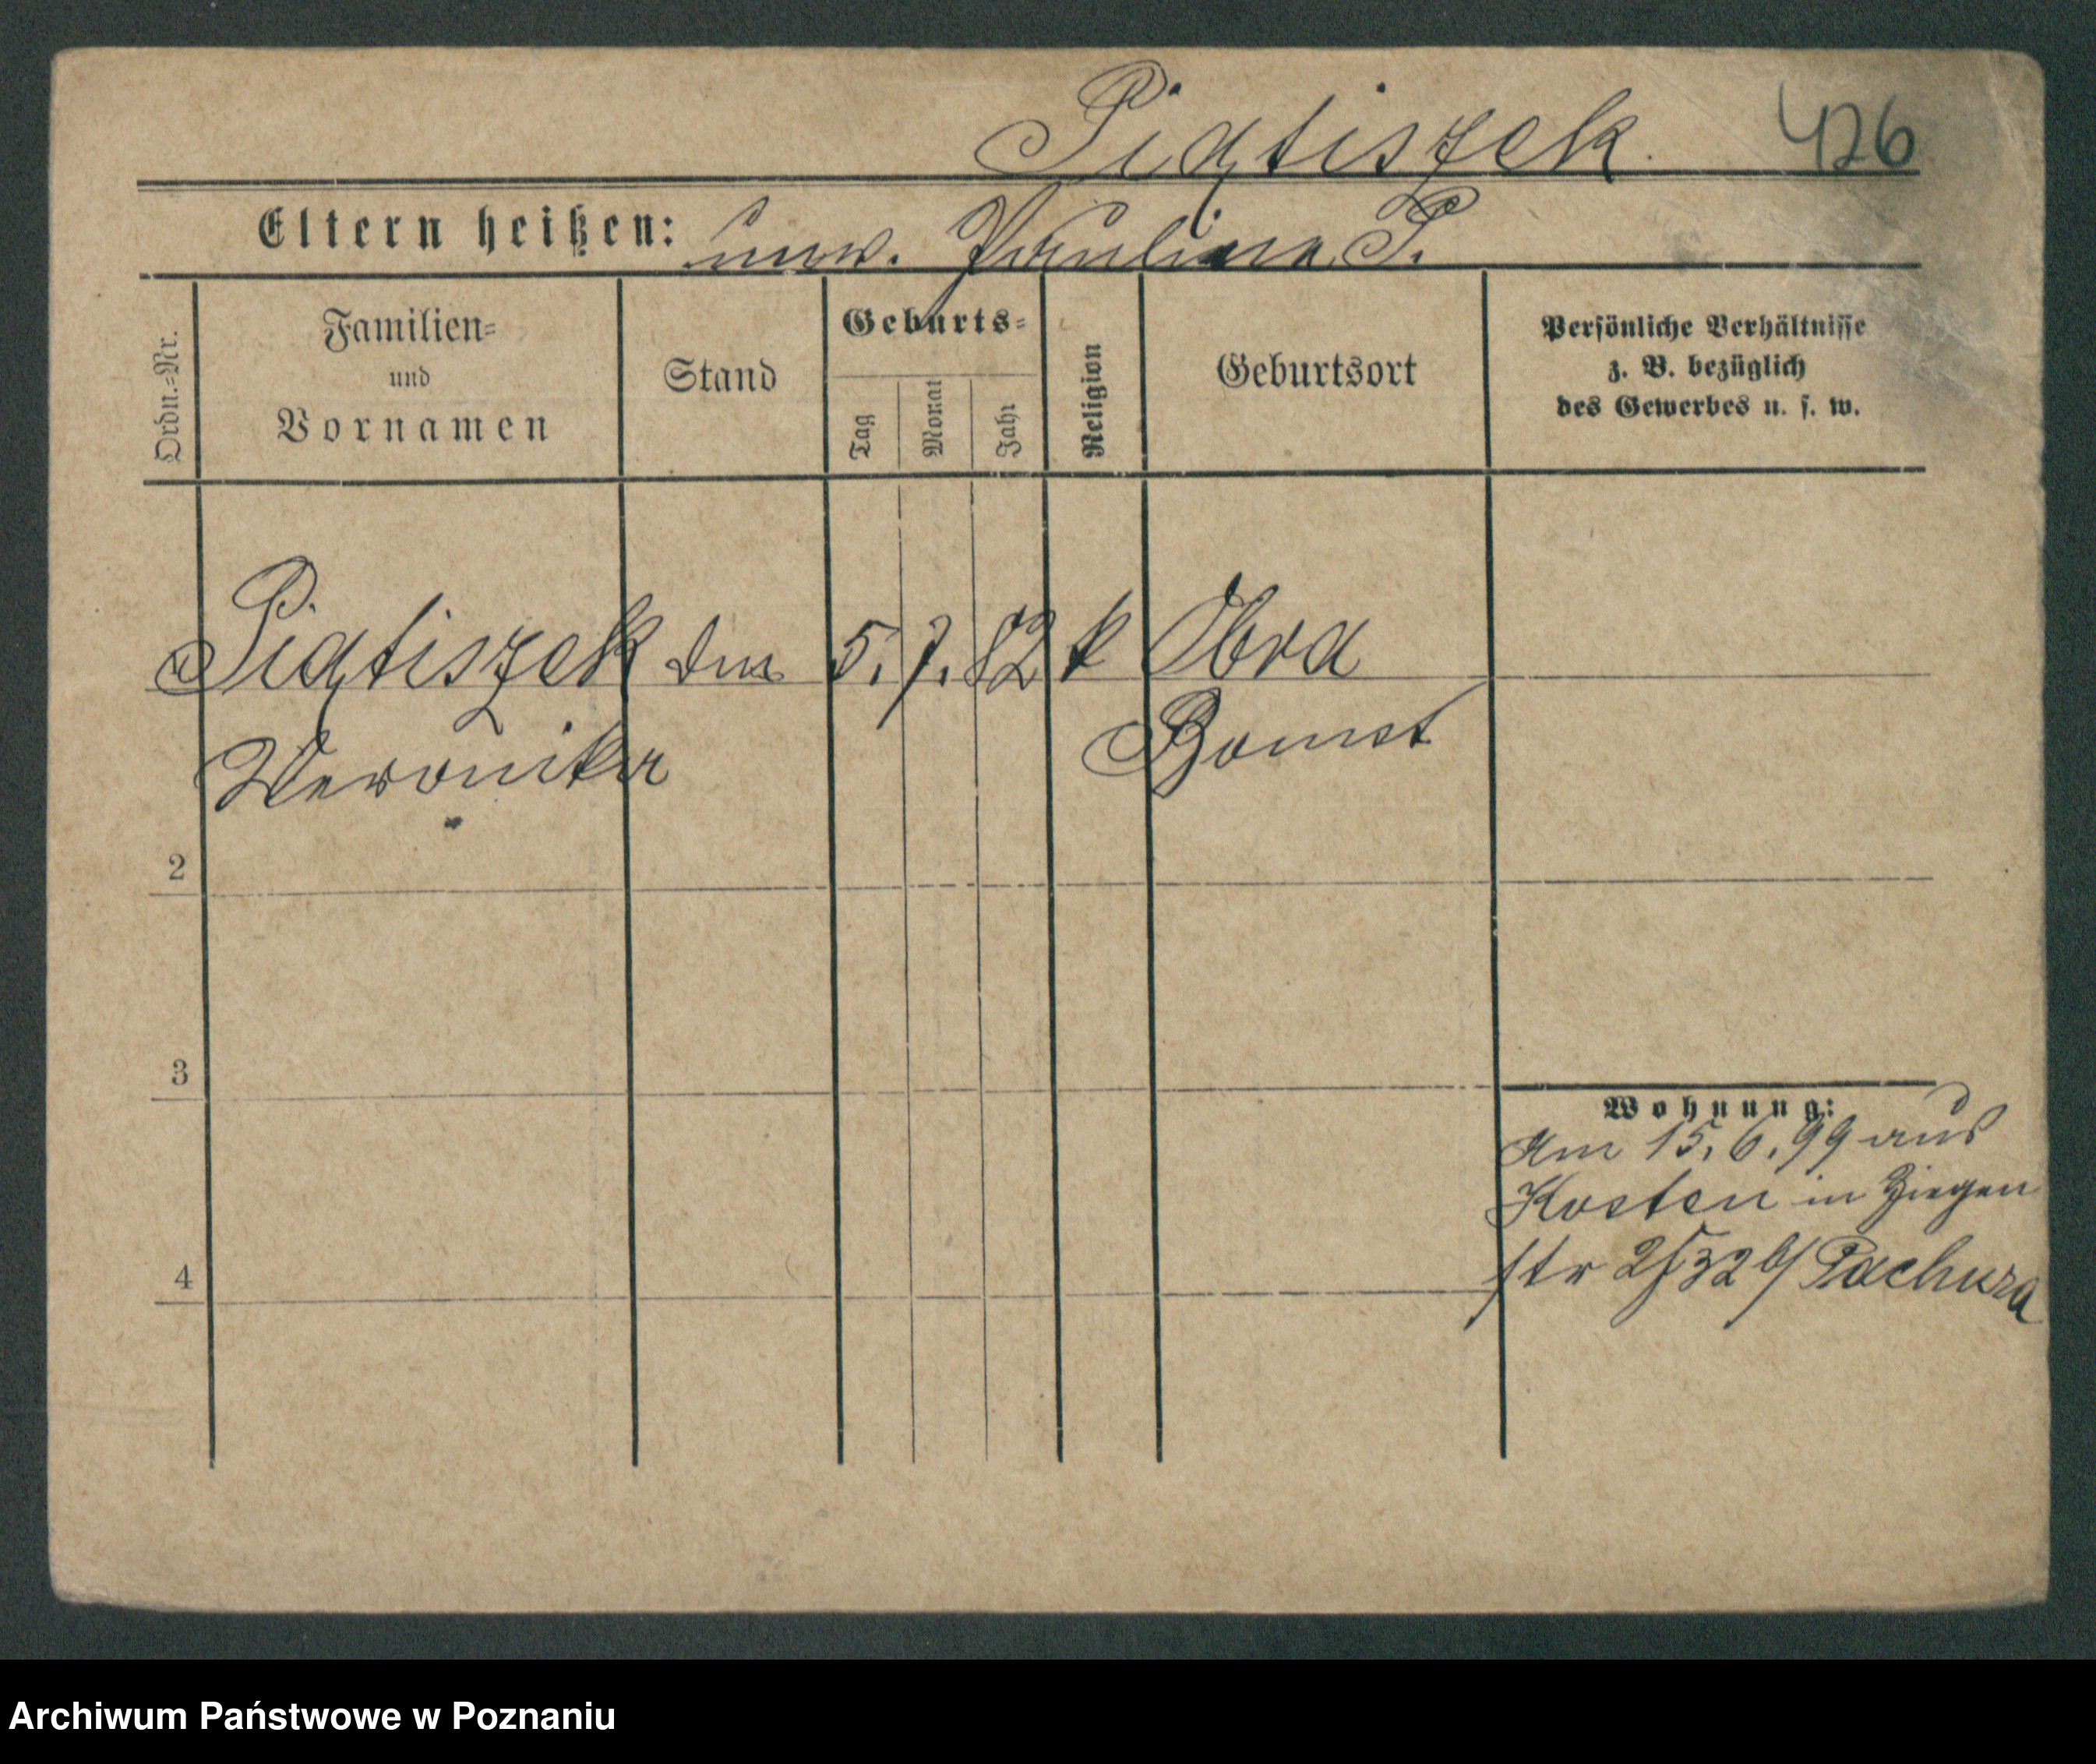 Piątiszek. 426
Eltern heißen: unv. Paulina P.
Ordn.=Nr.
Familien=
und
Vornamen
Stand
Geburts=
Tag
Monat
Jahr
Religion
Geburtsort
Persönliche Verhältnisse
z. B. bezüglich
des Gewerbes u. s. w.
Piątiszek 5. 7. 82 k Obra
Veronika Bomst
2
3
4
Wohnung:
Am 15. 6. 99 aus
Kosten in Ziegen
str 25 32 b/ Pachura
Archiwum Państwowe w Poznaniu